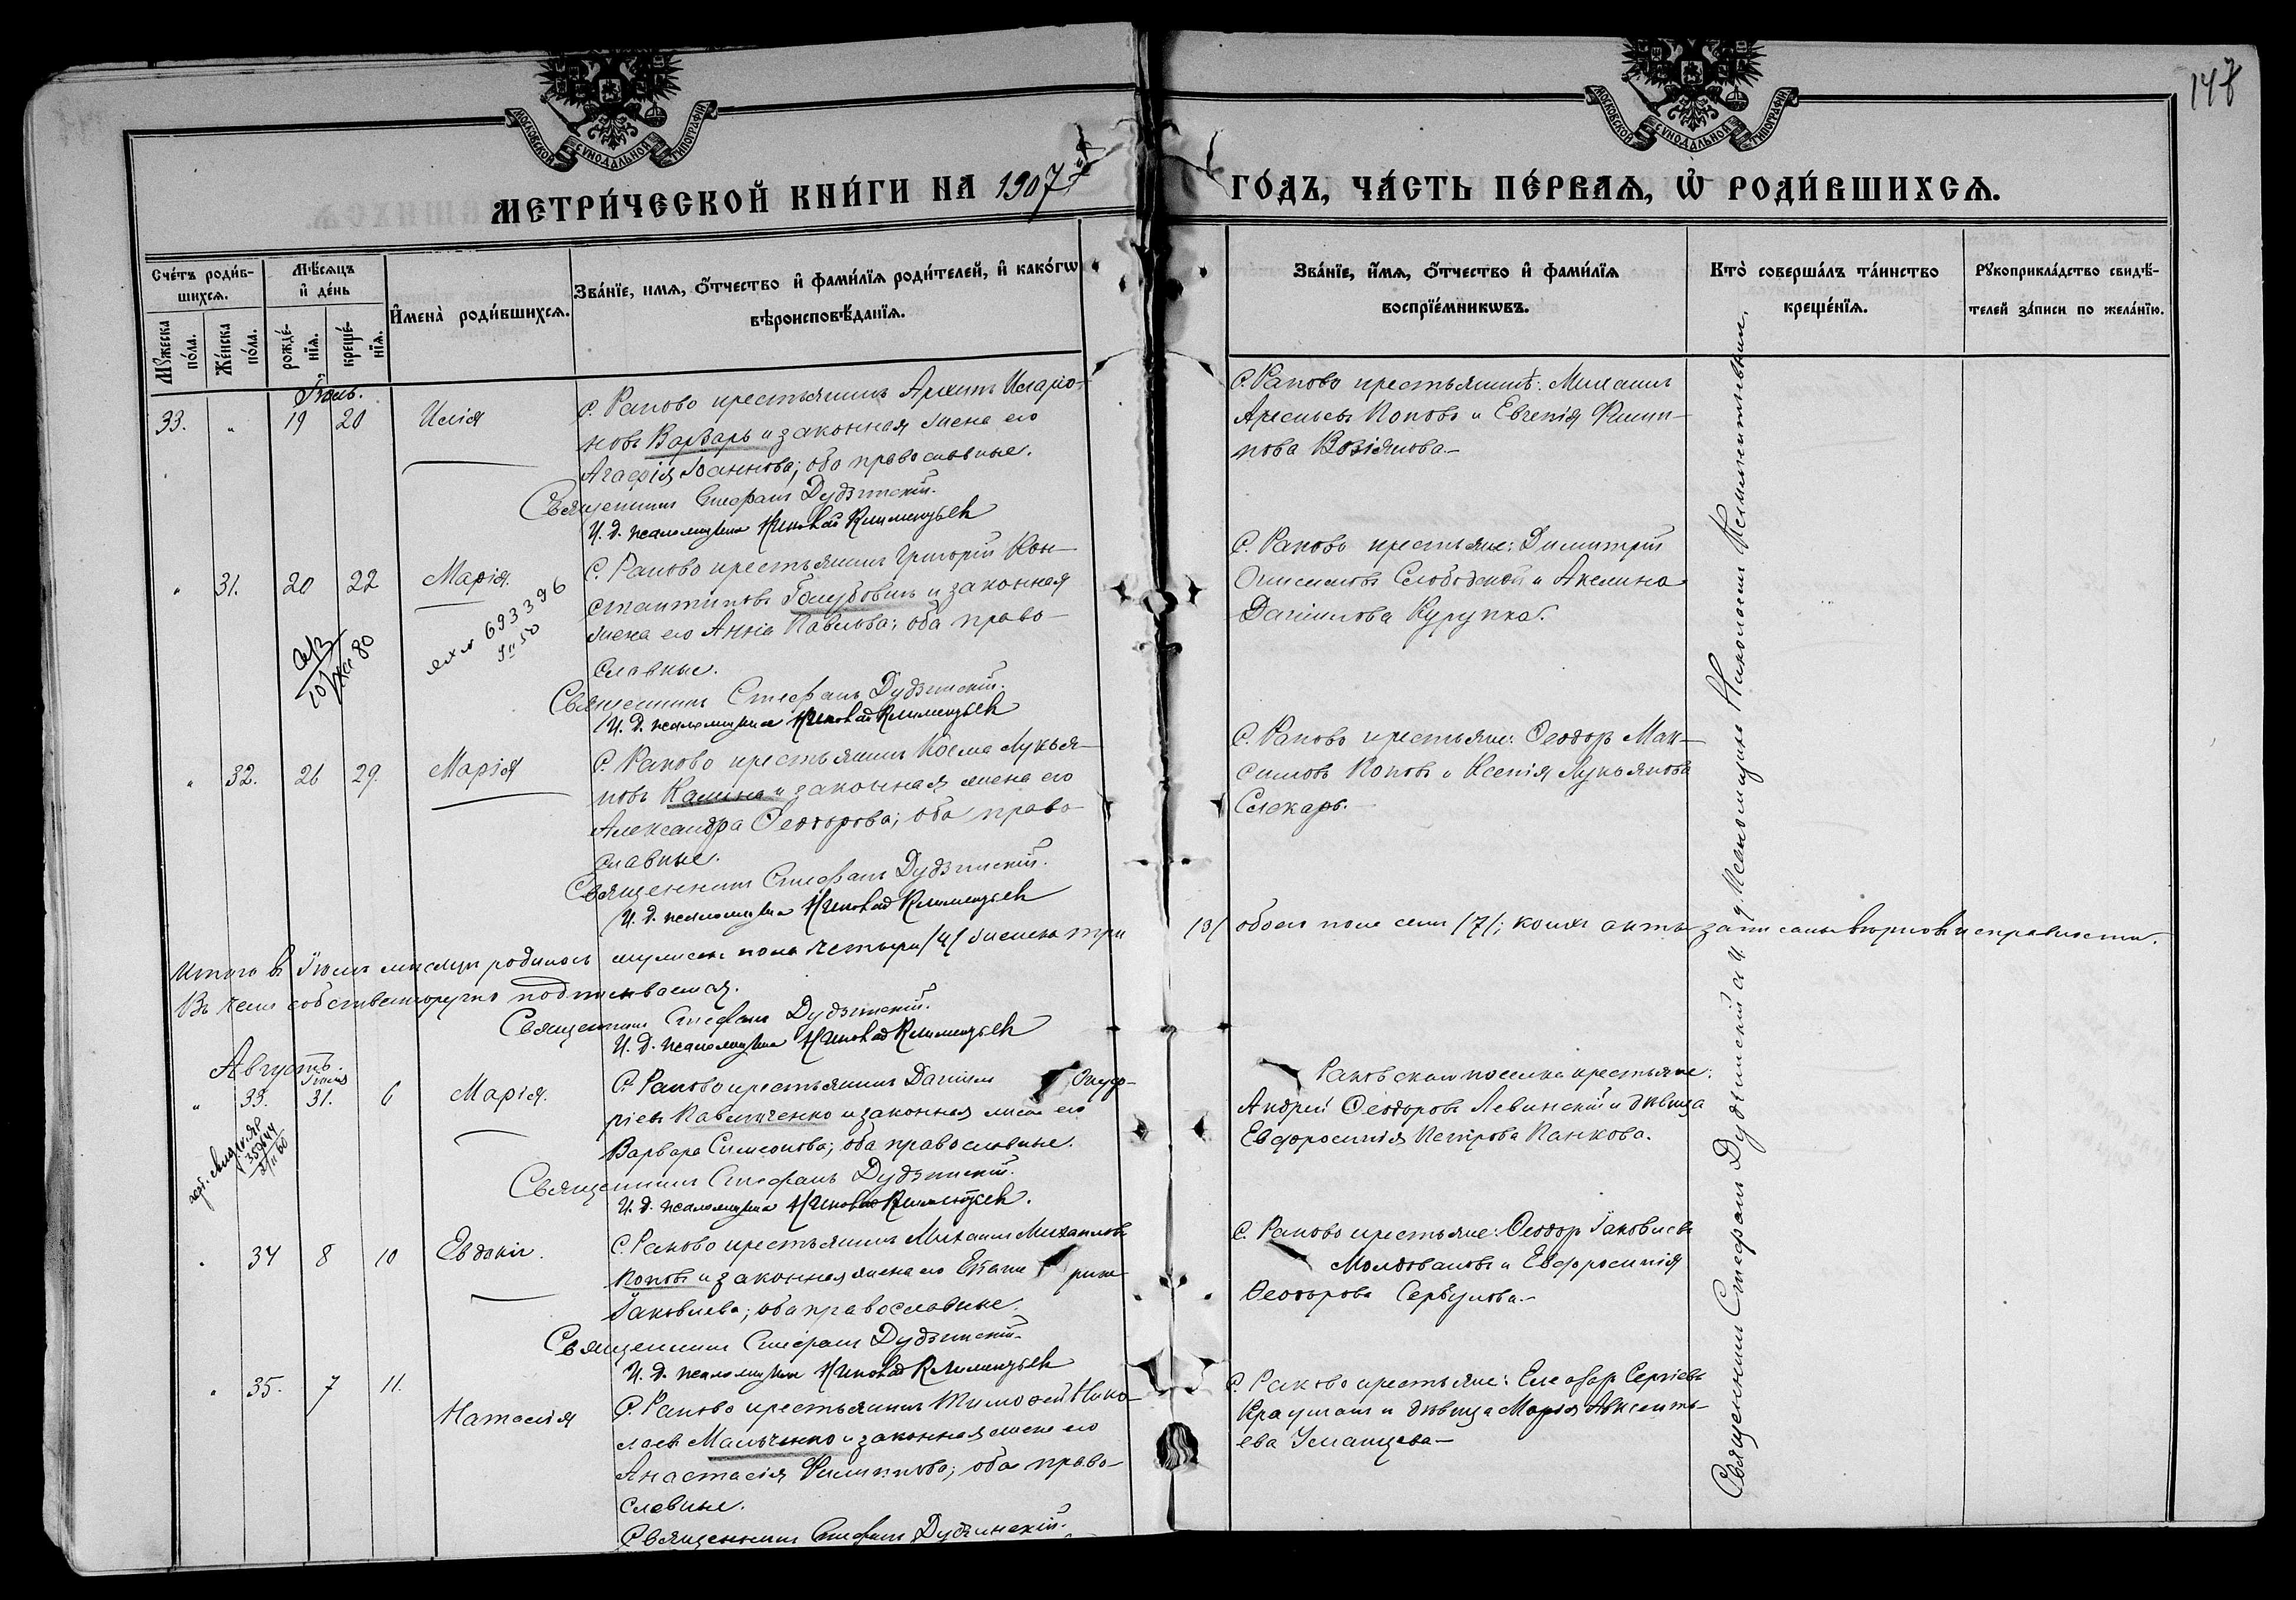 147
МОСКОВСКОЙ СѴНОДАЛЬНОЙ ТИПОГРАФІИ
МОСКОВСКОЙ СѴНОДАЛЬНОЙ ТИПОГРАФІИ
МЕТРИ́ЧЕСКОЙ КНИ́ГИ НА 1907й
ГО́ДЪ, ЧА́СТЬ ПЕ́РВАѦ, Ѡ҆ РОДИ́ВШИХСѦ.
Сче́тъ роди́в-
шихсѧ.
Мѣ́сѧцъ
и҆ де́нь
Мꙋ́жеска по́ла.
Же́нска по́ла.
рожде́-
нїѧ.
креще́-
нїѧ.
И҆мена̀ роди́вшихсѧ.
Зва́нїе, имѧ, ѻ҆́тчество и҆ фами́лїѧ роди́телей, и҆ како́гѡ
вѣроисповѣ́данїѧ.
Зва́нїе, и҆́мѧ, ѻ҆́тчество и҆ фами́лїѧ
воспрїе́мникѡвъ.
Кто̀ соверша́лъ та́инство
креще́нїѧ.
Рꙋкоприкла́дство свидѣ́-
телей за́писи по жела́нїю.
Іюль.
33. " 19 20 Илія
С. Раково крестьянинъ Архипъ Иларіо-
новъ Варварь и законная жена его
Агафія Іоаннова; оба православные.
Священникъ Стефанъ Дудзинскій.
И. д. псаломщика Николай Климентьев
С. Раково крестьяне: Михаилъ
Арсеньевъ Поповъ и Евгенія Филип-
пова Возіянова.
" 31. 20 22 Марія.
С. Раково крестьянинъ Григорій Кон-
стантиновъ Голубовичъ и законная
жена его Анна Павлова; оба право-
славные.
693396
Священникъ Стефанъ Дудзинскій.
И. д. псаломщика Николай Климентьев
С. Раково крестьяне: Димитрій
Онисимовъ Слободской и Акелина
Даніилова Курупка.
" 32. 26 29. Марія
С. Раково крестьянинъ Косма Лукья-
новъ Калина и законная жена его
Александра Ѳеодорова; оба право-
славные.
Священникъ Стефанъ Дудзинскій.
И. д. псаломщика Николай Климентьев
С. Раково крестьяне: Ѳеодоръ Мак-
симовъ Поповъ и Ксенія Лукьянова
Слекарь.
Итого въ Іюлѣ месяцѣ родилось мужеска пола четыри /4/ женска три /3/ обоего пола семь /7/; коихъ акты записаны вѣрно и въ исправности.
Въ чемъ собственноручно подписываемся.
Священникъ Стефанъ Дудзинскій.
И. д. псаломщика Николай Климентьев
Августъ.
" 33. Іюля 31. 6 Марія.
С. Раково крестьянинъ Даніилъ Онуф-
ріевъ Павличенко и законная жена его
Варвара Симеонова; оба православные.
Священникъ Стефанъ Дудзинскій.
И. д. псаломщика Николай Климентьев.
Раковскаго поселка крестьяне:
Андрей Ѳеодоровъ Левинскій и дѣвица
Евфросинія Петрова Панкова.
" 34 8 10 Евдокія.
С. Раково крестьянинъ Михаилъ Михаиловъ
Поповъ и законная жена его Екате рина
Іаковлева; оба православные.
Священникъ Стефанъ Дудзинскій.
И. д. псаломщика Николай Климентьев
С. Раково крестьяне: Ѳеодоръ Іаковлевъ
Молдовановъ и Евфросинія
Ѳеодорова Сербулова.
" 35. 7 11. Наталія
С. Раково крестьянинъ Тимоѳей Нико-
лаевъ Мальченко и законная жена его
Анастасія Филиппова; оба право-
славные.
Священникъ Стефанъ Дудзинскій.
С. Раково крестьяне: Елеазаръ Сергіевъ
Краушанъ и дѣвица Марія Авксенть-
ева Уманцева
Священникъ Стефанъ Дудзинскій и И. д. псаломщика Николай Климентьевъ.